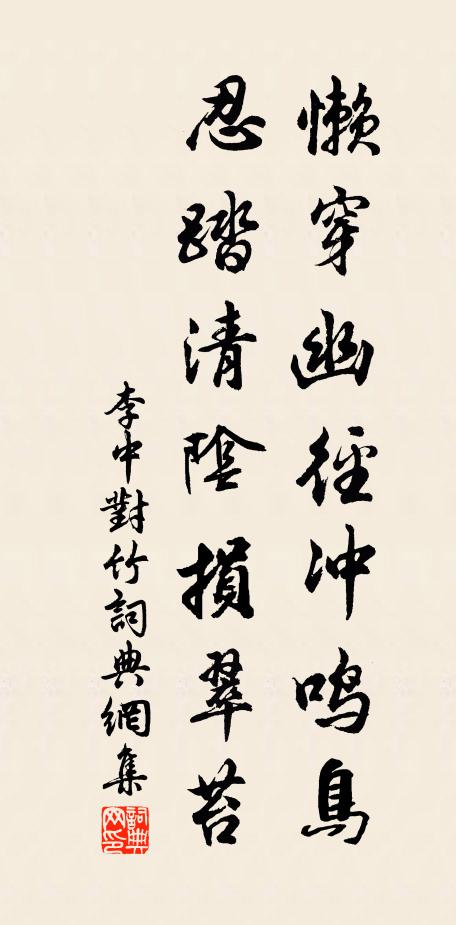 懒穿幽径冲鸣鸟
忍踏清阴損翠苔
李中對竹詞典網集
詞典网印